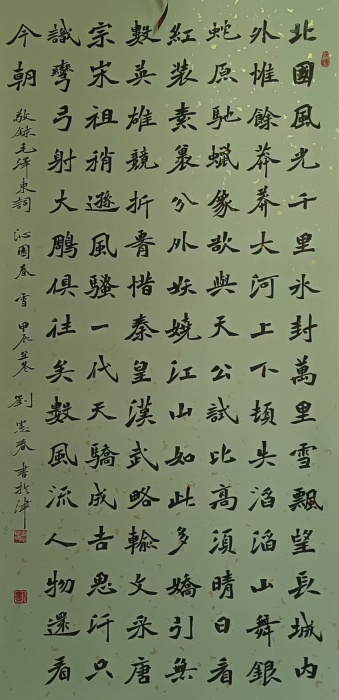 北國風光千里氷封萬里雪飄望長城内
外惟餘莽莽大河上下頓失滔滔山舞銀
蛇原馳蠟象欲與天公試比高須晴日看
紅裝素裹分外妖嬈江山如此多嬌引無
數英雄競折腰惜秦皇漢武略輸文采唐
宗宋祖稍遜風騷一代天驕成吉思汗只
識彎弓射大鵰俱往矣數風流人物還看
今朝
敬録毛澤東詞 沁園春 雪 甲辰 劉憲春書於津